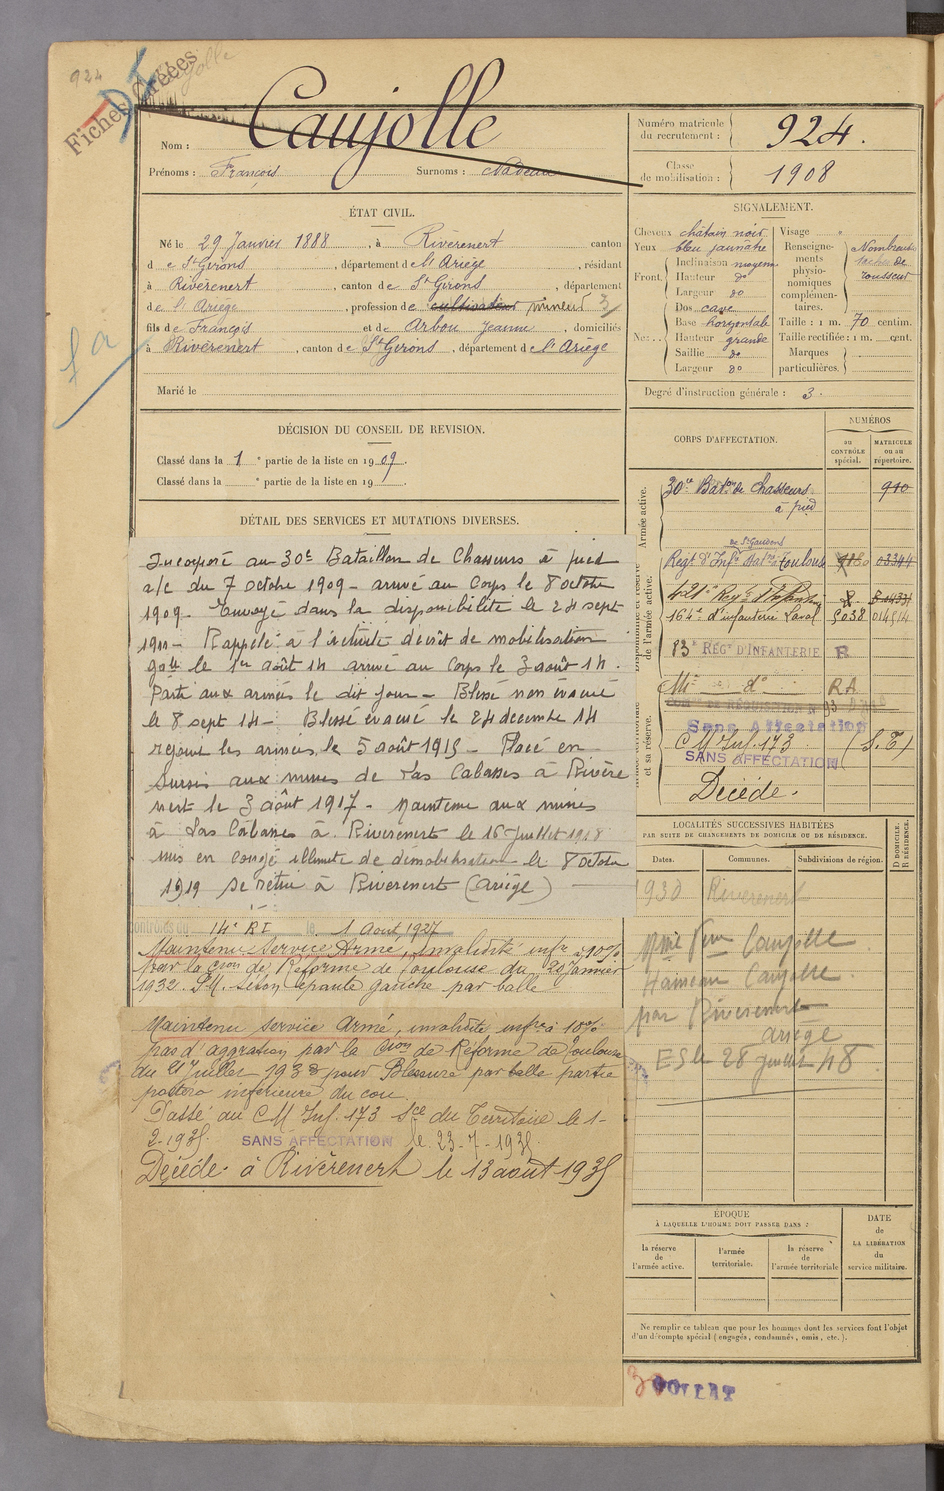 924
Fiches Créées
Nom : Caujolle
Prénoms : François Surnoms : Nadeau
Numéro matricule
du recrutement : 924.
Classe
de mobilisation : 1908
ÉTAT CIVIL.
Né le 29 Janvier 1888, à Rivèrenert canton
de St Girons, département de l'Ariège, résidant
à Rivèrenert, canton de St Girons, département
de l'Ariège, profession de cultivateur mineur 3
fils de François et de Arbou Jeanne, domiciliés
à Rivèrenert, canton de St Girons, département de l'Ariège
Marié le
SIGNALEMENT.
Cheveux châtain noir
Yeux bleu jaunâtre
Front. Inclinaison moyenne
Hauteur do
Largeur do
Nez.. Dos cave
Base horizontale
Hauteur grande
Saillie do
Largeur do
Visage "
Renseigne-
ments
physio-
nomiques
complémen-
taires.
Nombreuses
taches de
rousseur
Taille : 1 m. 70 centim.
Taille rectifiée : 1 m. cent.
Marques
particulières.
Degré d'instruction générale : 3.
DÉCISION DU CONSEIL DE REVISION.
Classé dans la 1e partie de la liste en 1909.
Classé dans la e partie de la liste en 19
DÉTAIL DES SERVICES ET MUTATIONS DIVERSES.
Incorporé au 30e Bataillon de Chasseurs à pied
a/c du 7 octobre 1909 - arrivé au Corps le 8 octobre
1909. Envoyé dans la disponibilité le 24 sept
1911 - Rappelé à l'activité décret de mobilisation
gale le 1er août 14 arrivé au Corps le 3 août 14.
Parti aux armées le dit jour - Blessé non évacué
le 8 sept 14 - Blessé évacué le 24 decembre 14
rejoint les armées le 5 août 1915 - Placé en
sursis aux mines de Las Cabasses à Rivère
nert le 3 août 1917 - Maintenu aux mines
à Las Cabasses à Riverenert le 16 Juillet 1918
mis en congé illimité de démobilisation le 8 octobre
1919 Se retire à Riverenert (Ariège)
contrôles du 14e RI le 1 Août 1927
Maintenu Service Armé, invalidité infre à 10%
par la Cion de Réforme de Toulouse du 20 Janvier
1932. P.M. Séton épaule gauche par balle
Maintenu service Armé, invalidité infre à 10%
pas d'aggration par la Cion de Réforme de Toulouse
du 21 Juillet 1938 pour Blessure par balle partie
postero inférieure du cou.
Passé au C M Inf. 173 Sce du Territoire le 1-
2-1935. SANS AFFECTATION le 23-7-1935.
Décédé à Rivèrenert le 13 août 1935
CORPS D'AFFECTATION.
NUMÉROS
au
CONTRÔLE
spécial.
MATRICULE
ou au
répertoire.
Armée active.
30e Baton de Chasseurs 910
à pied
de l'armée active.
de St Gaudens
Regt d'Infie Toulouse 03344
421e Reg
164e d'infanterie Laval 5038 014514
83e RÉGt D'INFANTERIE R
Mi do RA
et sa réserve.
Sans Affectation
C M Inf. 173 (S.T)
SANS AFFECTATION
Décédé.
LOCALITÉS SUCCESSIVES HABITÉES
PAR SUITE DE CHANGEMENTS DE DOMICILE OU DE RÉSIDENCE.
D DOMICILE.
R RÉSIDENCE.
Dates. Communes. Subdivisions de région.
1930 Riverenert
Mme Vve Caujolle
Hameau Caujolle
par Riverenert
ariège
ES le 28 juillet 48
ÉPOQUE
À LAQUELLE L'HOMME DOIT PASSER DANS :
la réserve
de
l'armée active.
l'armée
territoriale.
la réserve
de
l'armée territoriale
DATE
de
LA LIBÉRATION
du
service militaire.
Ne remplir ce tableau que pour les hommes dont les services font l'objet
d'un décompte spécial (engagés, condamnés, omis, etc.).